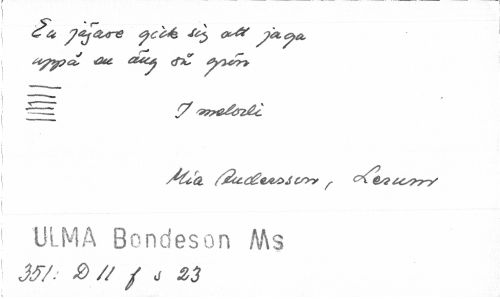 En jägare gick sig att jaga
uppå en äng så grön
1 melodi
Mia Andersson, Lerum
ULMA Bondeson Ms
351: D 11 f s 23